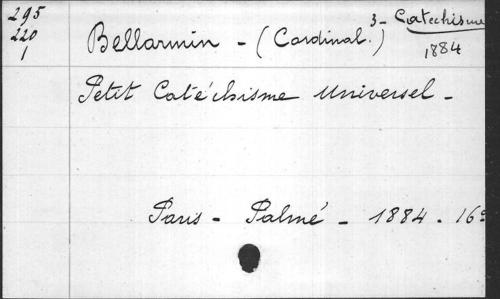 295
220
1
3- Catechisme
1884
Bellarmin - (Cardinal.)
Petit Catéchisme Universel -
Paris - Palmé - 1884 - 16º